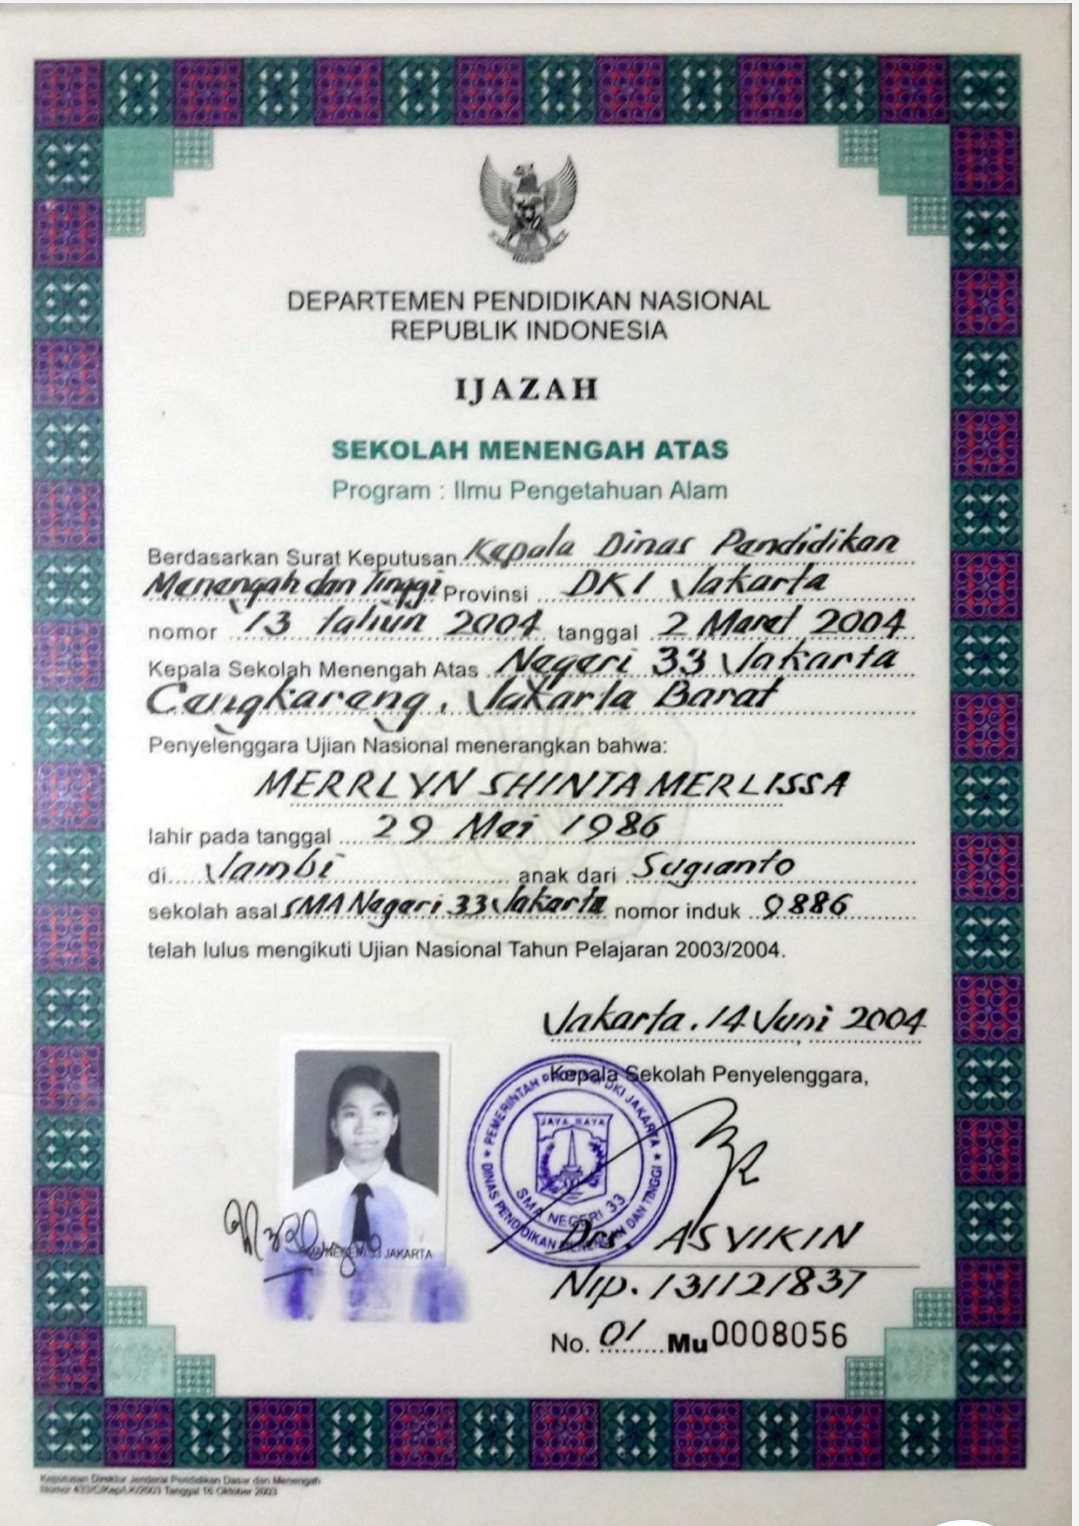 DEPARTEMEN PENDIDIKAN NASIONAL
REPUBLIK INDONESIA
IJAZAH
SEKOLAH MENENGAH ATAS
Program : Ilmu Pengetahuan Alam
Berdasarkan Surat Keputusan Kepala Dinas Pendidikan
Menengah dan Tinggi Provinsi DKI Jakarta
nomor 13 tahun 2004 tanggal 2 Maret 2004
Kepala Sekolah Menengah Atas Negeri 33 Jakarta
Cengkareng, Jakarta Barat
Penyelenggara Ujian Nasional menerangkan bahwa:
MERRLYN SHINTA MERLISSA
lahir pada tanggal 29 Mei 1986
di Jambi anak dari Sugianto
sekolah asal SMA Negeri 33 Jakarta nomor induk 9886
telah lulus mengikuti Ujian Nasional Tahun Pelajaran 2003/2004.
Jakarta, 14 Juni 2004
Kepala Sekolah Penyelenggara,
PEMERINTAH PROPINSI DKI JAKARTA
DINAS PENDIDIKAN MENENGAH DAN TINGGI
JAYA RAYA
SMA NEGERI 33
NEGERI 33 JAKARTA
Drs. ASVIKIN
Nip. 131121837
No. 01 Mu 0008056
Keputusan Direktur Jenderal Pendidikan Dasar dan Menengah
Nomor 433/C/Kep/LK/2003 Tanggal 16 Oktober 2003